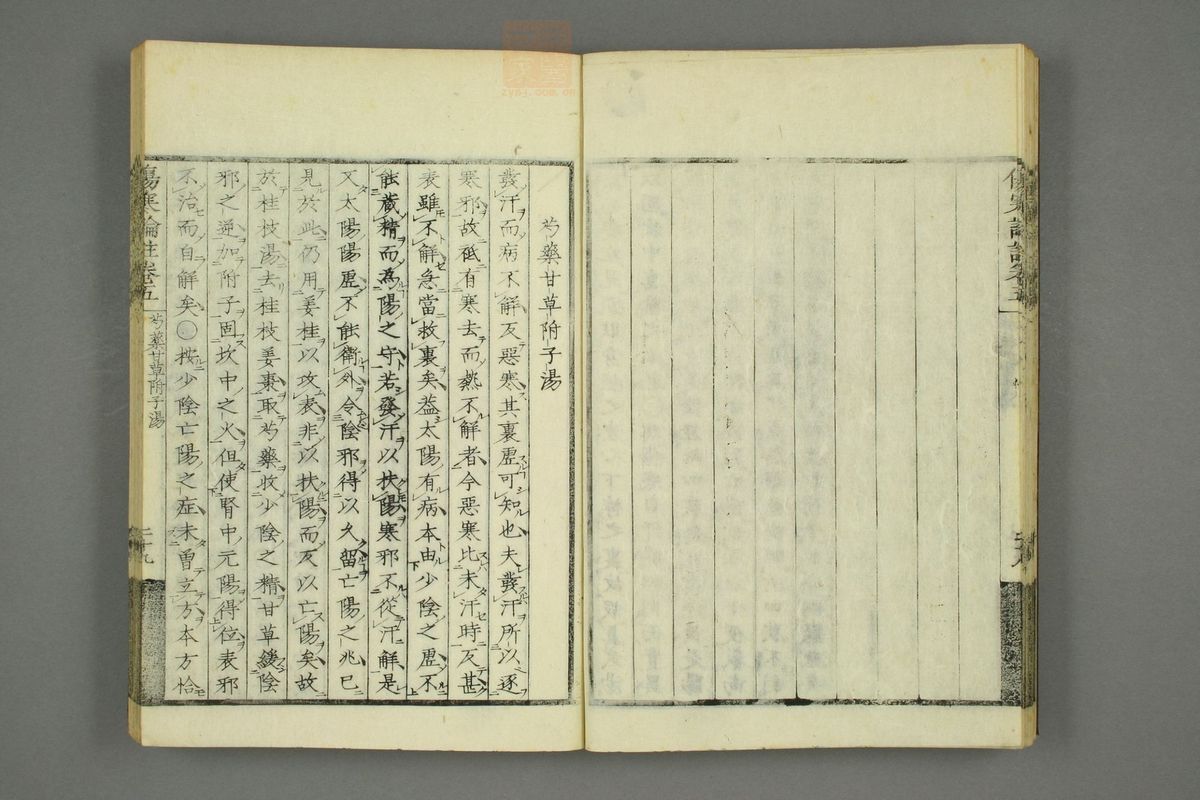 芍藥甘草附子湯
發汗而病不解反惡寒其裏虛可知也夫發汗所以逐
寒邪故祗有寒去而熱不解者今惡寒比未汗時反甚
表雖不解急當救裏矣蓋太陽有病本由少陰之虛不
能藏精而為陽之守若發汗以扶陽寒邪不從汗解是
又太陽陽虛不能衛外令陰邪得以久留亡陽之兆已
見於此仍用姜桂以攻表非以扶陽而反以亡陽矣故
於桂枝湯去桂枝姜棗取芍藥收少陰之精甘草緩陰
邪之逆加附子固坎中之火但使腎中元陽得位表邪
不治而自解矣〇按少陰亡陽之症未曾立方本方恰
傷寒論註卷五 芍藥甘草附子湯 二十九
zysj.com.cn